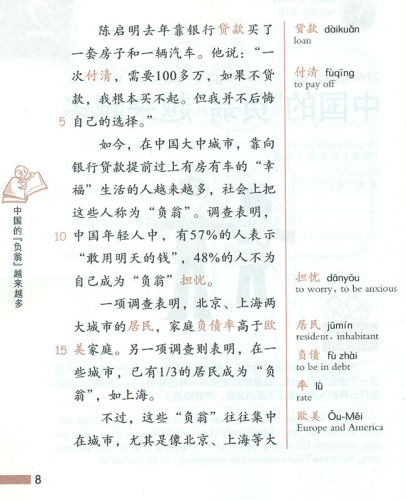 陈启明去年靠银行贷款买了
一套房子和一辆汽车。他说：“一
次付清，需要100多万，如果不贷
款，我根本买不起。但我并不后悔
5 自己的选择。”
如今，在中国大中城市，靠向
银行贷款提前过上有房有车的“幸
福”生活的人越来越多，社会上把
这些人称为“负翁”。调查表明，
10 中国年轻人中，有57%的人表示
“敢用明天的钱”，48%的人不为
自己成为“负翁”担忧。
一项调查表明，北京、上海两
大城市的居民，家庭负债率高于欧
15 美家庭。另一项调查则表明，在一
些城市，已有1/3的居民成为“负
翁”，如上海。
不过，这些“负翁”往往集中
在城市，尤其是像北京、上海等大
贷款 dàikuǎn
loan
付清 fùqīng
to pay off
担忧 dānyōu
to worry, to be anxious
居民 jūmín
resident, inhabitant
负债 fù zhài
to be in debt
率 lǜ
rate
欧美 Ōu-Měi
Europe and America
中国的“负翁”越来越多
8